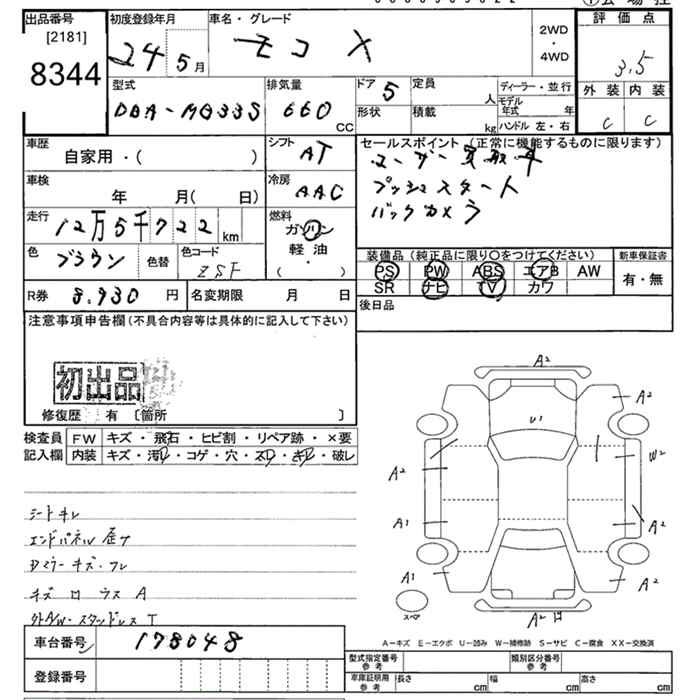 出品番号
[2181]
8344
初度登録年月
24 5月
車名・グレード
モコ X
2WD
・
4WD
評価点
3.5
外装 内装
C C
型式
DBA-MG33S
排気量
660
CC
ドア
5
形状
定員
人
積載
kg
ディーラー・並行
モデル
年式 年
ハンドル 左・右
車歴
自家用・( )
車検
年 月( 日)
走行
12万5千722 km
色
ブラウン
色替
色コード
ZSF
シフト
AT
冷房
AAC
燃料
ガソリン
軽・油
( )
セールスポイント(正常に機能するものに限ります)
ユーザー買取車
プッシュスタート
バックカメラ
装備品(純正品に限り○をつけてください)
PS PW ABS エアB AW
SR ナビ TV カワ
新車保証書
有・無
R券 8,930円
名変期限 月 日
後日品
注意事項申告欄(不具合内容等は具体的に記入して下さい)
初出品
修復歴 有 〔箇所 〕
検査員
記入欄
FW キズ・飛石・ヒビ割・リペア跡・×要
内装 キズ・汚レ・コゲ・穴・スレ・キレ・破レ
シートキレ
エンドパネル歪ケ
Dミラーキズ・ワレ
外A/W・スタッドレスT
車台番号 178048
登録番号
A2
A2
U1
A2
W2
A1
A2
A1
A2
A2
スペア
A-キズ E-エクボ U-凹み W-補修跡 S-サビ C-腐食 XX-交換済
型式指定番号
参考
類別区分番号
参考
車庫証明用
参考
長さ cm
幅 cm
高さ cm